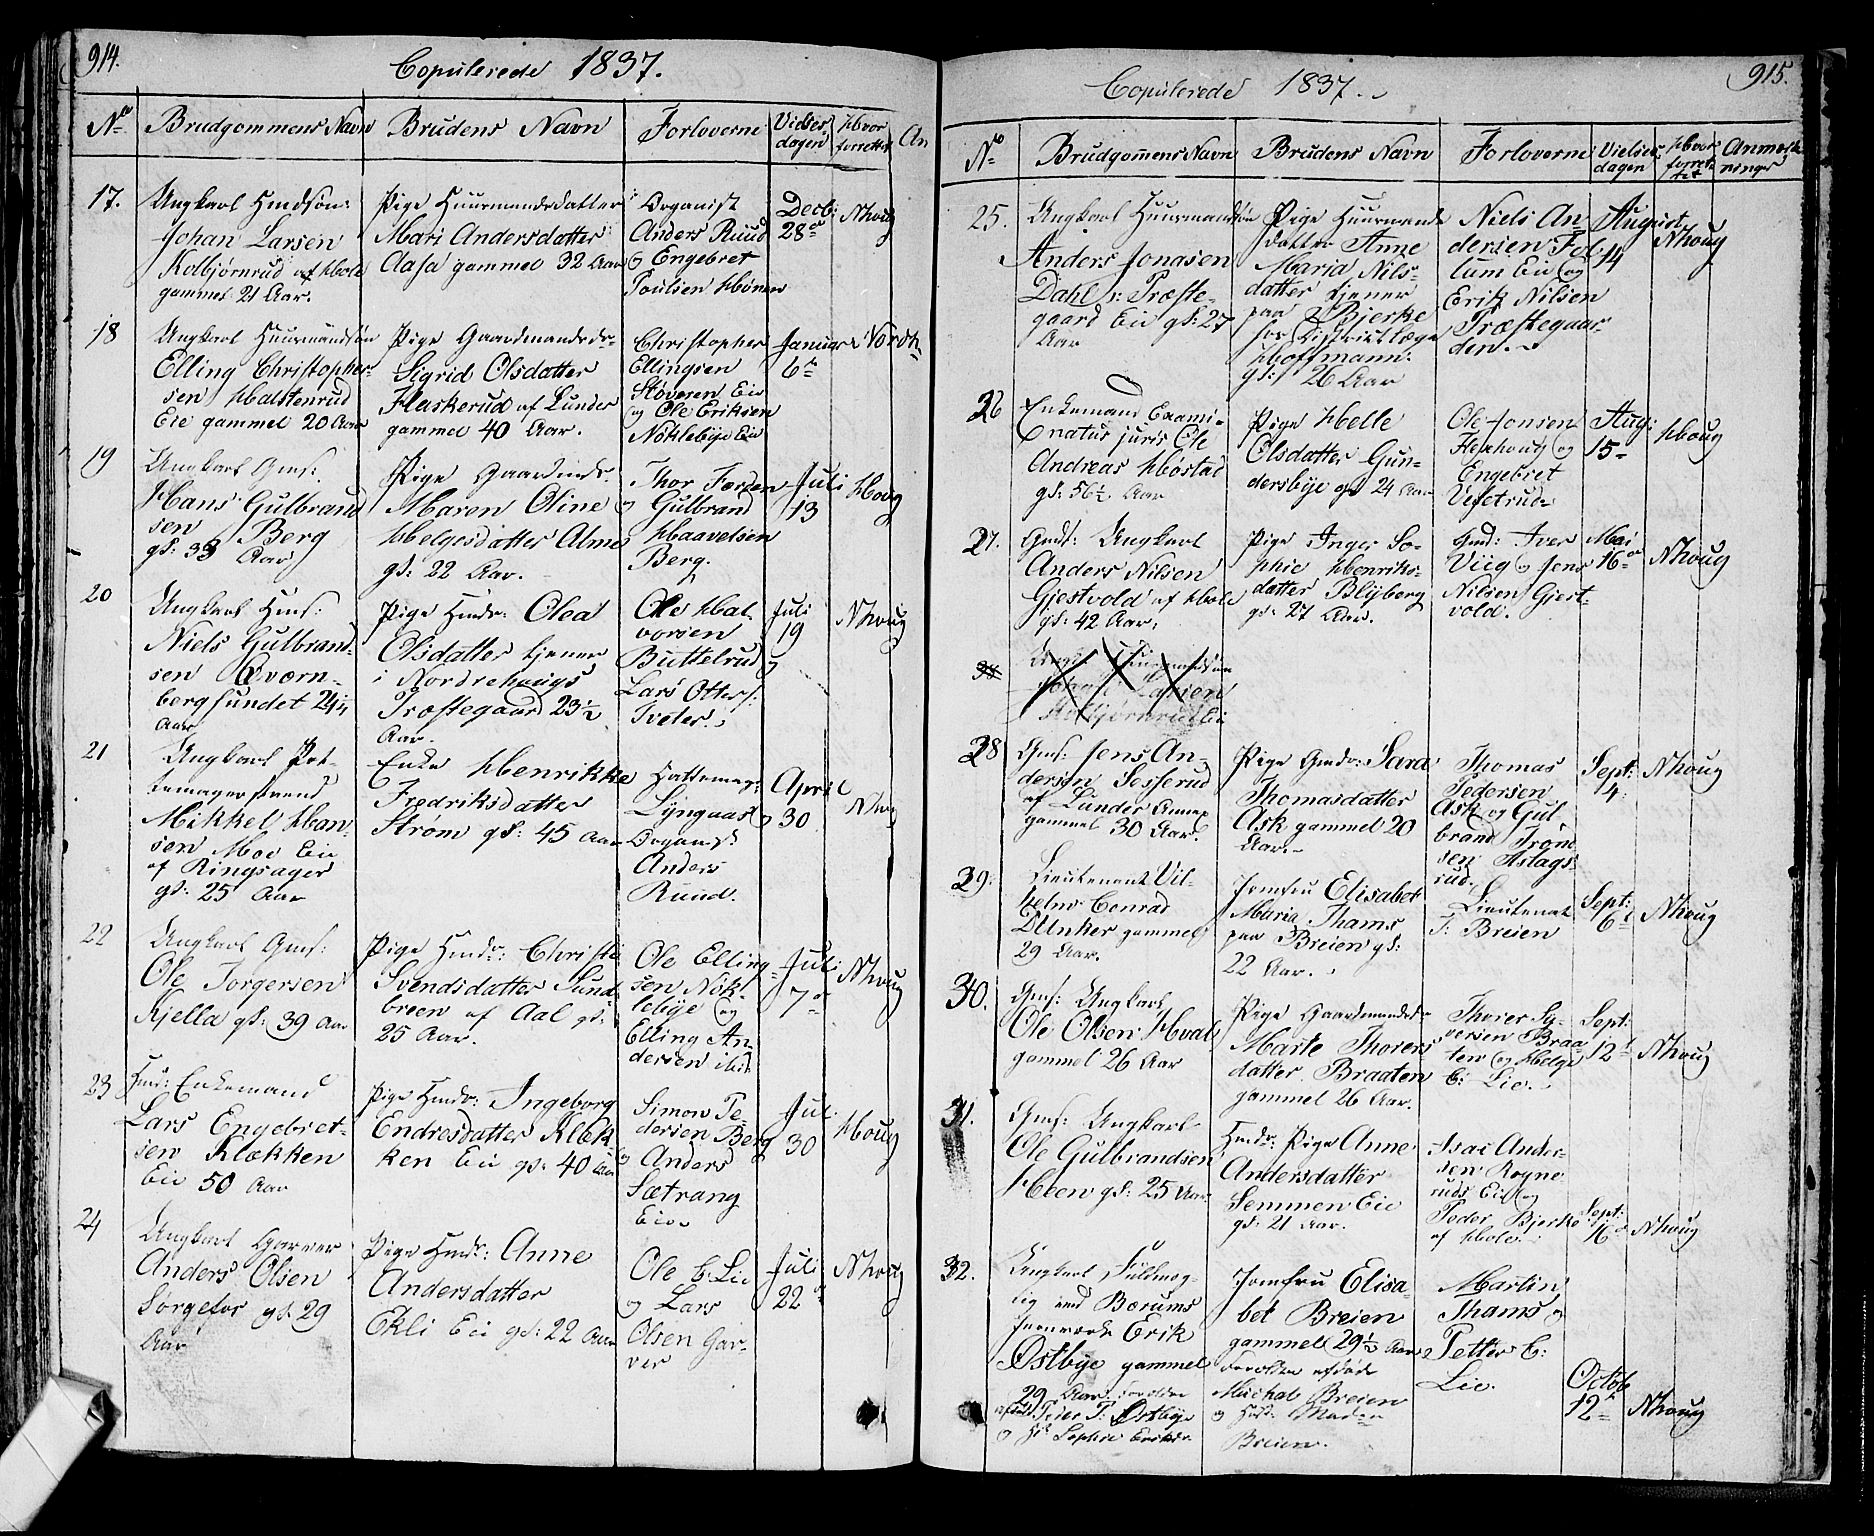 914.
Copulerede 1837.
No
Brudgommens Navn
Brudens Navn
Forloverne
Vielses dagen
Hvor forrettet
An
17.
Ungkarl
Johan Larsen
Kolbjørnrud af Hole
gammel 21 Aar.
Pige Huusmandsdatter
Mari Andersdatter
Aasa gammel 32 Aar
Organist
Anders Ruud
og Engebret
Poulsen Hønen
Decb:
28de
NHoug
18
Ungkarl Huusmandsøn
Elling Christopher-
sen Halstenrud
Eie gammel 20 Aar
Pige Gaardmandsdr
Sigrid Olsdatter
Flaskerud af Lunder
gammel 40 Aar.
Christopher
Ellingsen
Støveren Eie
og Ole Eriksen
Nøklebye Eie
Januar
6te
Nordh
19
Ungkarl Gmf:
Hans Gulbrand
sen Berg
gl: 33 Aar
Pige
Maren Oline
Helgesdatter Alme
gl: 22 Aar.
Thor
og Gulbrand
Haavelsen
Berg.
Juli
13
Houg
20
Ungkarl
Niels Gulbrand-
sen Qværn-
bergsundet 24¼
Aar
Pige Hmdr: Olea
Olsdatter tjener
i Nordrehougs
Præstegaard 23½
Aar.
Ole Hal-
vorsen
Buttelrud og
Lars Otters:
Tveter.
Juli
19
NHoug
21
Ungkarl Pot-
temagersvend
Mikkel Han-
sen Moe Eie
af Ringsager
gl: 25 Aar
Enke Henrikke
Fredriksdatter
Strøm gl: 45 Aar
Hattemag:
Lyngaas og
Organist
Anders
Ruud.
April
30
NHoug
22
Ungkarl Gmf:
Ole Torgersen
Kjella gl: 39 Aar
Pige Hmdr: Christi
Svendsdatter Sund
breen af Aal gl:
25 Aar.
Ole Elling-
sen Nøk-
lebye og
Elling An-
dersen ibid
Juli
7de
NHoug
23
Hmd: Enkemand
Lars Engebret-
sen Klækken
Eie 50 Aar
Pige Hmdr: Ingeborg
Endresdatter Klæk
ken Eie gl: 40 Aar
Simon Pe-
dersen Berg
og Anders
Sætrang
Eie
Juli
30
Houg
24
Ungkarl Garver
Anders Olsen
Sørgefos gl: 29
Aar
Pige Hmdr: Anne
Andersdatter
Ekli Eie gl: 22 Aar
Ole C: Lie
og Lars
Olsen Gar-
ver
Juli
22de
NHoug
915.
Copulerede 1837.
No
Brudgommens Navn
Brudens Navn
Forloverne
Vielses dagen
Hvor forrettet
Anmærkninger
25.
Ungkarl Huusmandsøn
Anders Jonasen
Dahl i Præste-
gaard Eie gl: 27
Aar
Pige Huusmands
datter Anne
Maria Nils-
datter tjener
paa Bjerke
hos Districtslæge
Hoffmann:
gl: 26 Aar
Niels An
dersen Fol
lum Eie og
Erik Nilsen
Præstegaar-
den.
August
14
NHoug
26
Enkemand Exami-
natus juris Ole
Andreas Høstad
gl: 56½ Aar
Pige Helle
Olsdatter Gun-
dersbye gl 24 Aar
Ole Jonsen
og
Engebret
Vesetrud
Aug:
15
Houg
27.
Ungkarl
Anders Nilsen
Gjestvold af Hole
gl: 42 Aar.
Pige Inger So-
phie Henriks-
datter Blyberg
gl: 27 Aar.
Gmd: Iver
Viig og Jens
Nilsen Gjest-
vold.
Mai
16de
NHoug
Johan Larsen
Kolbjørnrud Eie
28
Gmf: Jens An-
dersen Sosserud
af Lunder Annex
gammel 30 Aar.
Pige Gmdr: Sara
Thomasdatter
Ask gammel 20
Aar.
Thomas
Pedersen
Ask og Gul
brand Trond
sen Aslags-
rud.
Sept:
4
NHoug
29.
Lieutenant Vil-
helm Conrad
Dunker gammel
29 Aar.
Jomfru Elisabet
Maria Thams
paa Breien gl:
22 Aar.
Lieutenat
T: Breien
Sept:
6te
NHoug
30.
Gmf: Ungkarl
Ole Olsen Hval
gammel 26 Aar
Pige Gaardmandsdr
Marte Thorers
datter Braaten
gammel 26 Aar.
Thorer Sy-
versen Braa
ten og Helge
C: Lie.
Sept:
12te
NHoug
31.
Gmf: Ungkarl
Ole Gulbrandsen
Heen gl: 25 Aar
Hmdr: Pige Anne
Andersdatter
Semmen Eie
gl: 21 Aar.
Isac Ander-
sen Rogne
rud Eie og
Peder Bjerke
af Hole.
Sept:
16de
NHoug
32.
Ungkarl Fuldmæg-
tig ved Bærums
Jernværk Erik
Østbye gammel
29 Aar. Forældre
afdøde Peder P: Østbye
og Sophie
Jomfru Elisa
bet Breien
gammel 29½ Aar
Forældre afdøde
Michal Breien
og
Breien.
Martin
Thams og
Petter C:
Lie.
Octob
12te
NHoug